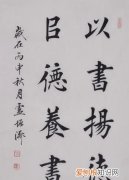 以書揚法
㠯德養書
歲在丙申秋月盧